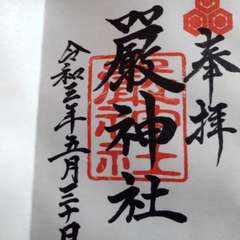 奉拝
嚴神社
令和三年五月三十日